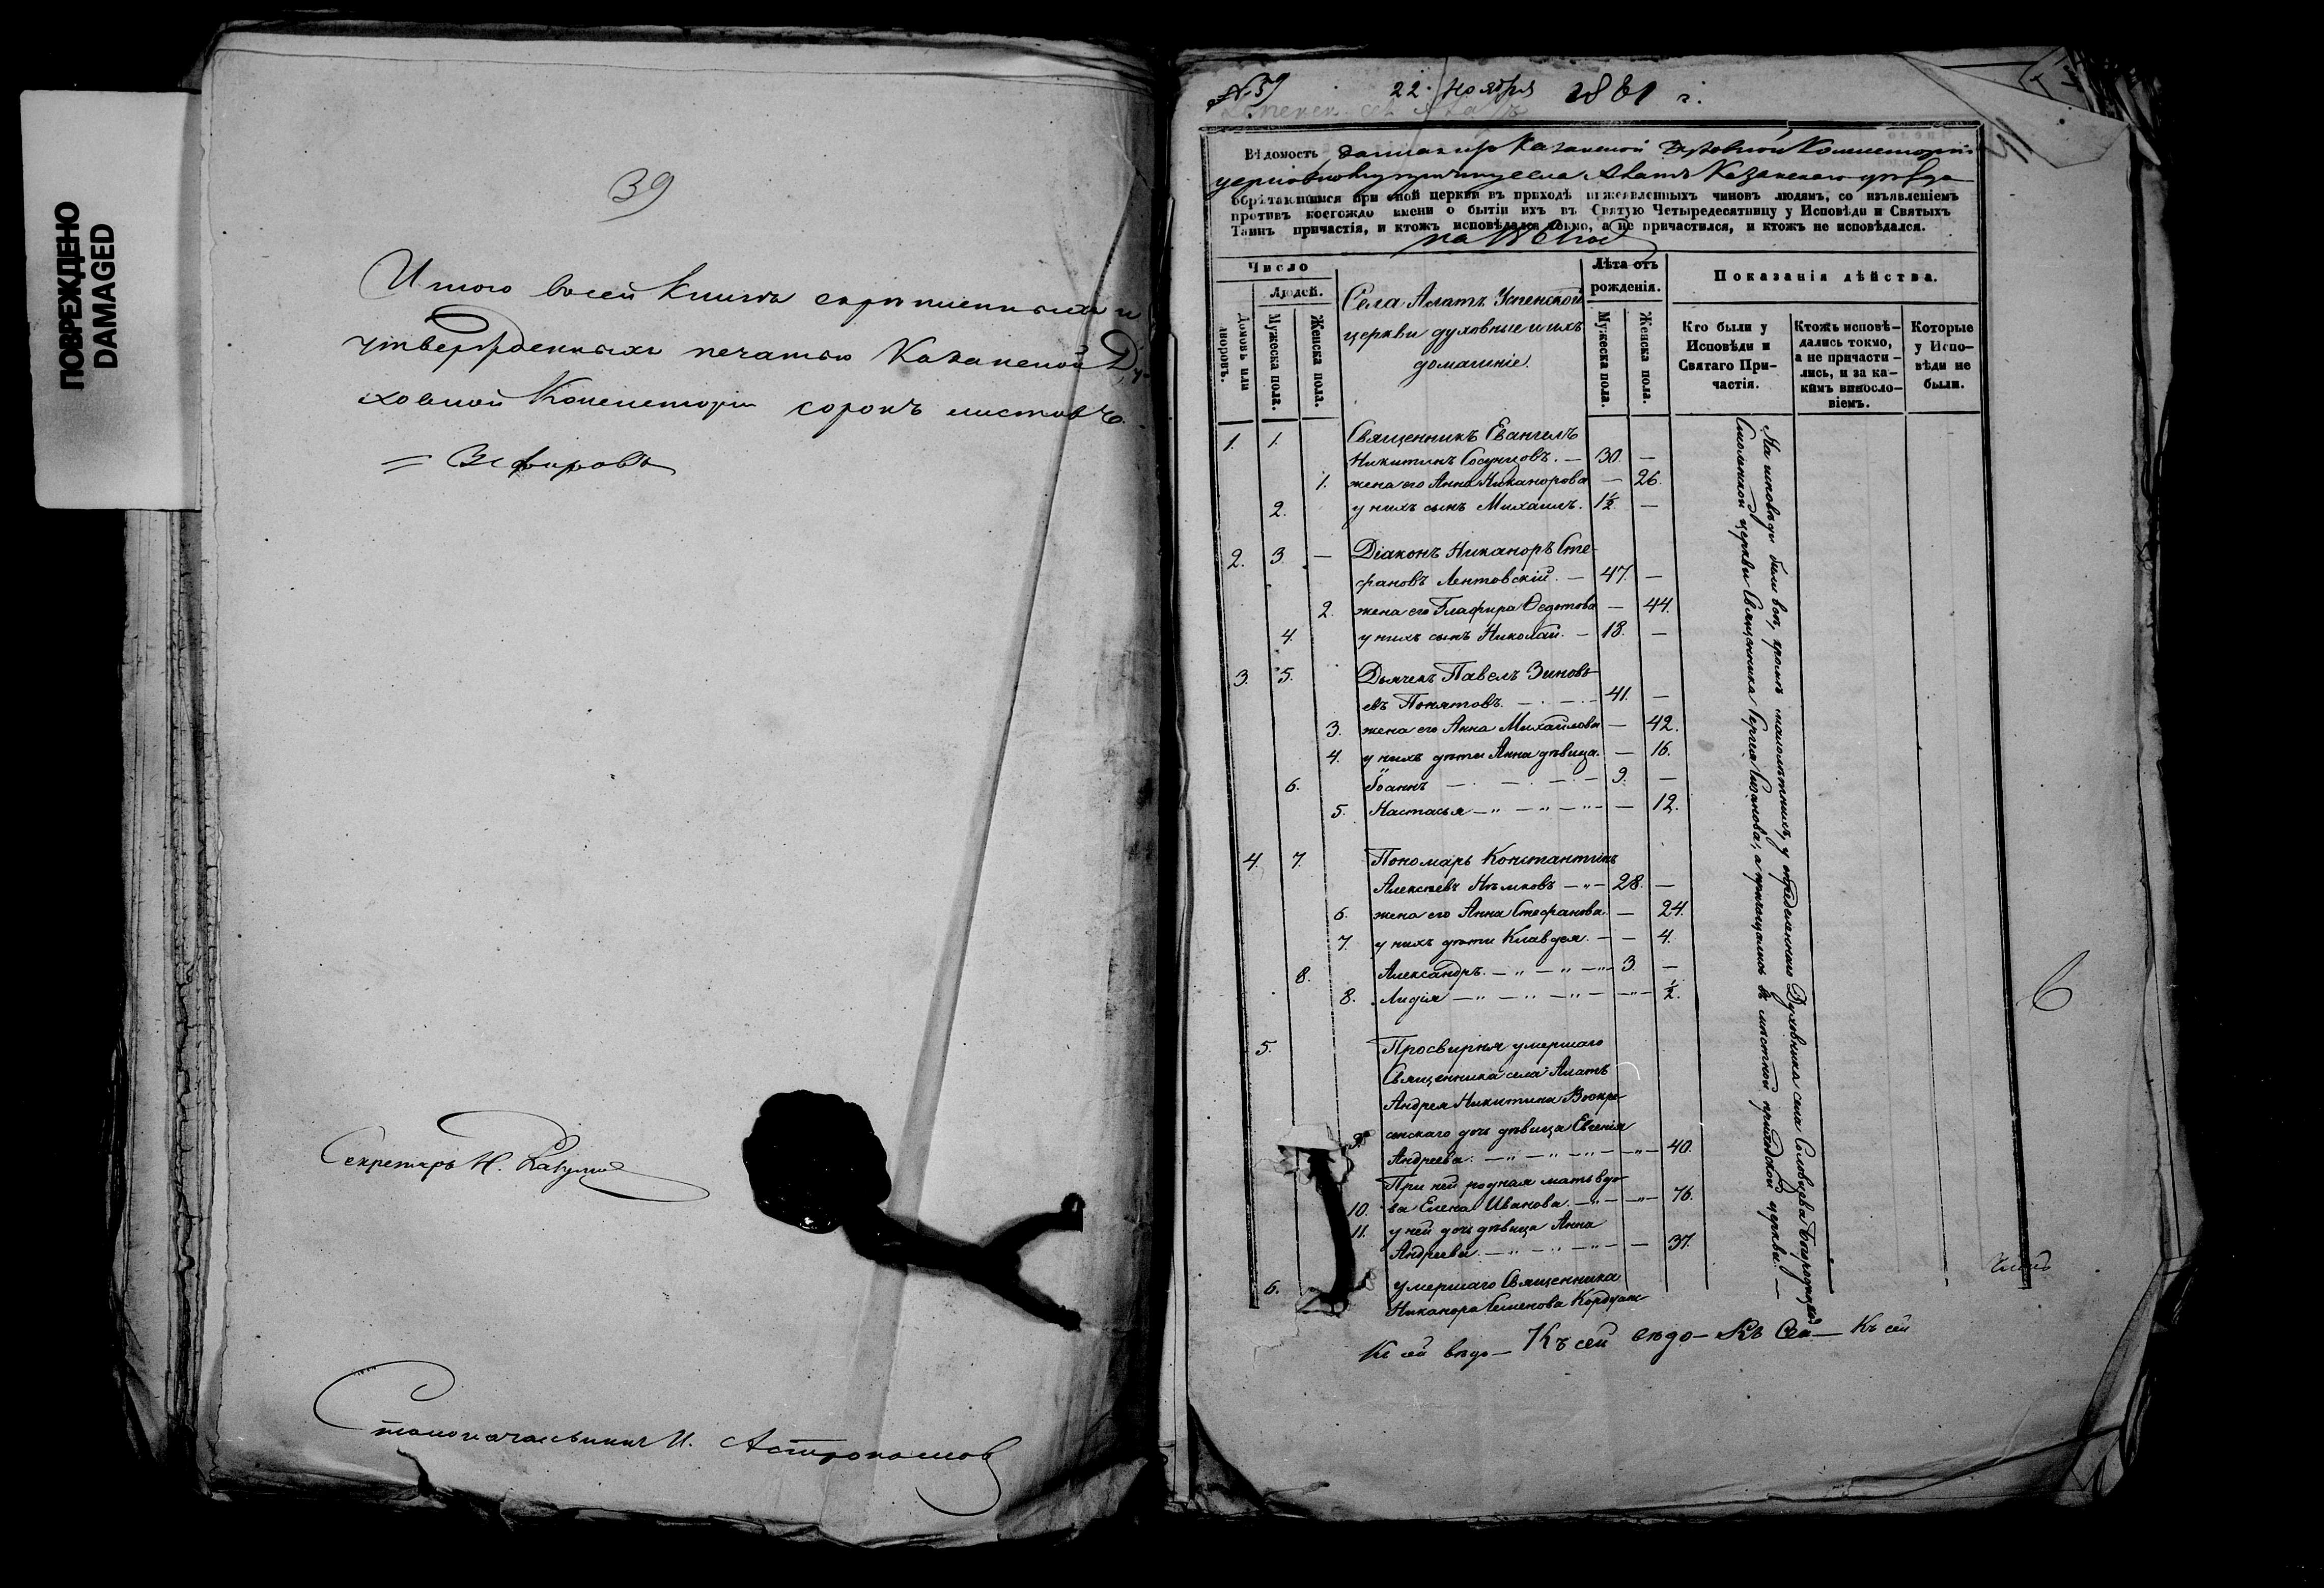 ПОВРЕЖДЕНО
DAMAGED
39
Итого в сей книгѣ скрѣпленныхъ и
утвержденныхъ печатью Казанской Ду-
ховной Консисторіи сорокъ листовъ.
= Зефировъ
Секретарь Н.
Столоначальникъ И. Астрономов
№ 39
22 Ноября 1861 г.
Вѣдомость данная изъ Казанской Духовной Консисторіи
села Алатъ Казанскаго уѣзда
обрѣтающимся при оной церкви въ приходѣ нижеявленныхъ чиновъ людямъ, со изъявленіемъ
противъ коегождо имени о бытіи ихъ въ Святую Четыредесятницу у Исповѣди и Святыхъ
Таинъ причастія, и ктожъ исповѣдался токмо, а не причастился, и ктожъ не исповѣдался.
на 1861 год
Число
Людей.
Домовъ или дворовъ.
Мужеска пола.
Женска пола.
Села Алатъ Успенской
церкви духовные и ихъ
домашніе.
Лѣта отъ рожденія.
Мужеска пола.
Женска пола.
Показанія дѣйства.
Кто были у Исповѣди и Святаго Причастія.
Ктожъ исповѣдались токмо, а не причастились, и за какимъ винословіемъ.
Которые у Исповѣди не были.
1. 1. Священникъ Евангелъ
Никитинъ Сосунцовъ. — 30. —
1. жена его Анна Никанорова — 26.
2. у нихъ сынъ Михаилъ. 1½ —
2. 3. — Діаконъ Никаноръ Сте-
фановъ Лентовскій. — 47. —
2. жена его Глафира Ѳедотова — 44.
4. у нихъ сынъ Николай. — 18. —
3. 5. Дьячекъ Павелъ Зиновь-
евъ Понятовъ. — 41. —
3. жена его Анна Михайлова — 42.
4. у нихъ дѣти Анна дѣвица. — 16.
6. Іоаннъ — 9. —
5. Настасья — 12.
4. 7. Пономарь Константинъ
Алексѣевъ Нѣмковъ — 28. —
6. жена его Анна Стефанова. — 24.
7. у нихъ дѣти Клавдея. — 4.
8. Александръ. — 3. —
8. Лидія — ½.
5. Просвирня умершаго
Священника села Алатъ
Андрея Никитина Воскре-
сенскаго дочь дѣвица Евгенія
9. Андреева. — 40.
При ней родная мать вдо-
10. ва Елена Иванова. — 76.
11. у ней дочь дѣвица Анна
Андреева. — 37.
6. умершаго Священника
Никанора Семенова
На исповѣди были всѣ, кромѣ малолѣтнихъ, у опредѣленнаго Духовника села Соловцева Богородицкой
Смоленской церкви Священника Сергея а пріобщались въ мѣстной приходской церкви. —
6
Къ сей вѣдо — Къ сей вѣдо — Къ Сей — Къ сей